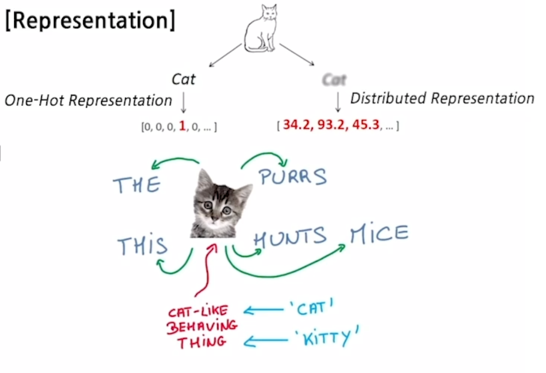 [Representation]
Cat
Cat
One-Hot Representation
Distributed Representation
[0, 0, 0, 1, 0, ... ]
[ 34.2, 93.2, 45.3, ... ]
THE
PURRS
THIS
HUNTS
MICE
CAT-LIKE
BEHAVING
THING
'CAT'
'KITTY'